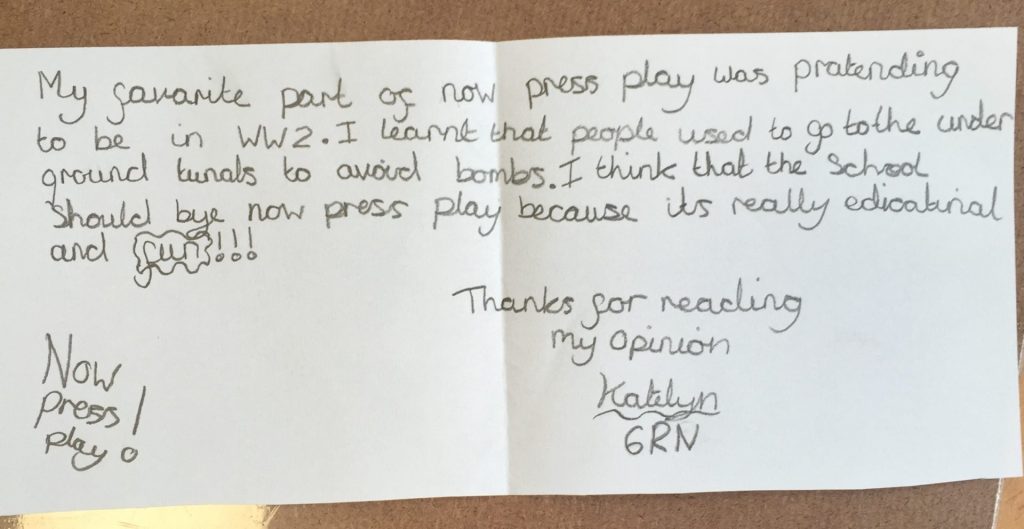 My favarite part of now press play was pratending
to be in WW2. I learnt that people used to go to the under
ground tunals to avoid bombs. I think that the School
Should bye now press play because its really edicatinal
and fun!!!
Thanks for reading
my opinion
Katelyn
6RN
Now
press
play!